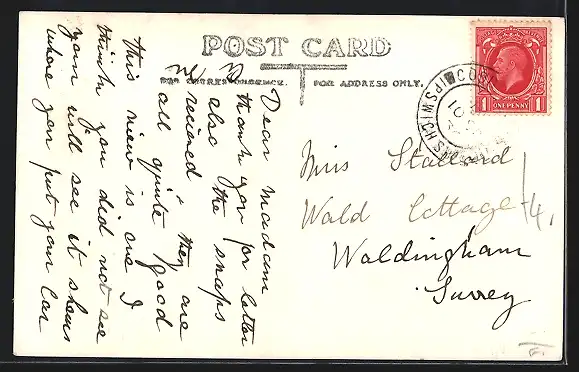 POST CARD
FOR CORRESPONDENCE.
FOR ADDRESS ONLY.
Dear Madam
thank you for letter
also the snaps
recieved, they are
all quite good
This view is one I
think you did not see
you will see it shows
where you put your Car
Miss Stallard
Wald Cottage
Woldingham
Surrey
IPSWICH
ONE PENNY
1 1